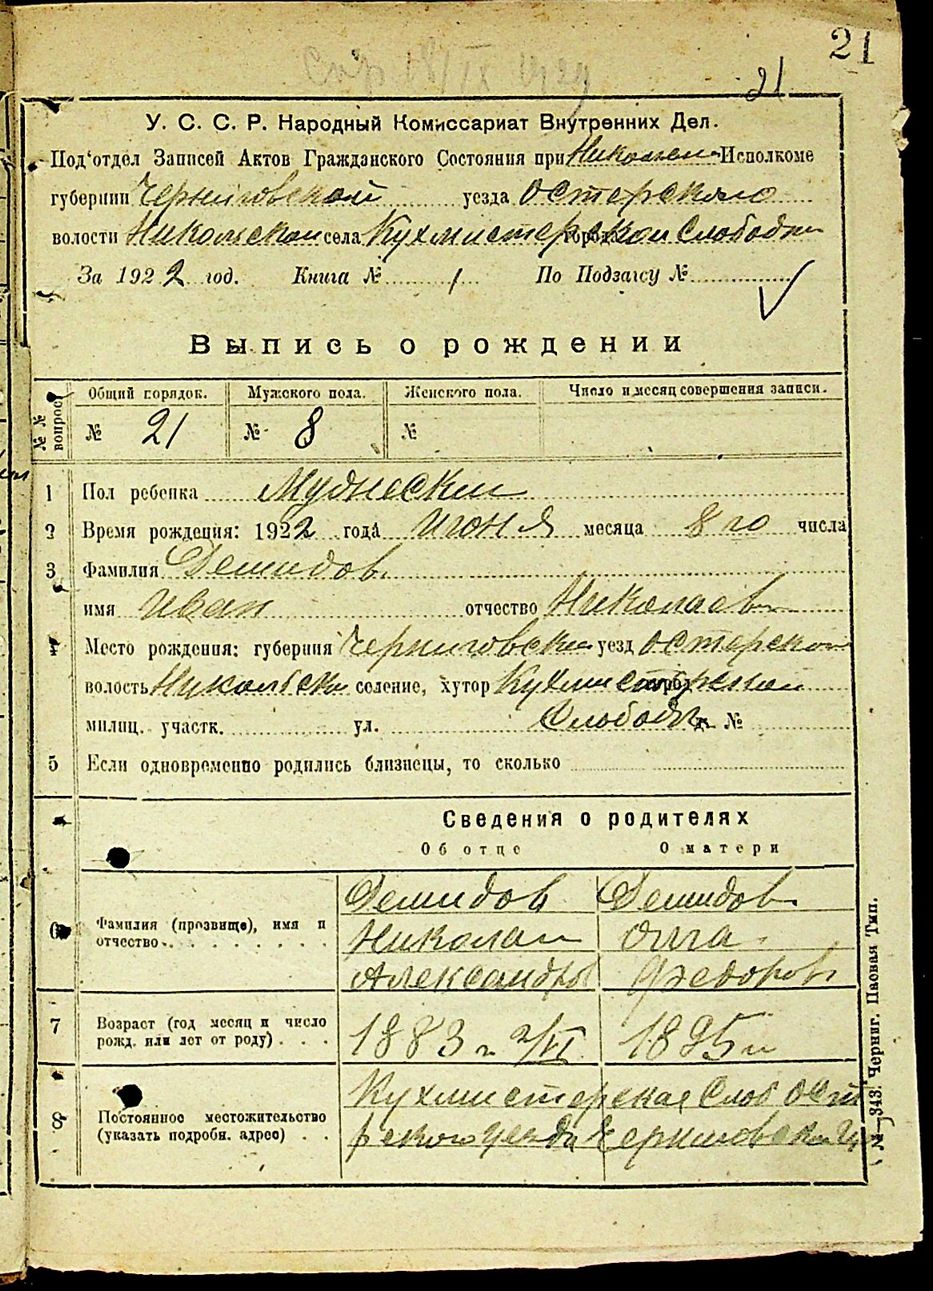 21
Спр 18/IX 1929
21
У. С. С. Р. Народный Комиссариат Внутренних Дел.
Под'отдел Записей Актов Гражданского Состояния при Николаев Исполкоме
губернии Черниговской уезда Остерского
волости Никольской села Кухмистерской Слободки города
За 1922 год. Книга № 1 По Подзагсу №
Выпись о рождении
№№ вопрос.
Общий порядок. Мужского пола. Женского пола. Число и месяц совершения записи.
№ 21 № 8 №
1 Пол ребенка Мужеский
2 Время рождения: 1922 года июня месяца 8го числа
3 Фамилия Демидов
имя Иван отчество Николаев
4 Место рождения: губерния Черниговской уезд Остерской
волость Никольской селение, хутор Кухмистерской
милиц. участк. ул. Слободк №
5 Если одновременно родились близнецы, то сколько
Сведения о родителях
Об отце О матери
6 Фамилия (прозвище), имя и отчество
Демидов Демидов
Николай Олга
Александры Федоров
7 Возраст (год месяц и число рожд. или лет от роду)
1883 г 2/VI 1895 г
8 Постоянное местожительство (указать подробн. адрес)
Кухмистерская Слоб Осте
рского уезда Черниговской Гу
№ 343. Черниг. Паевая Тип.